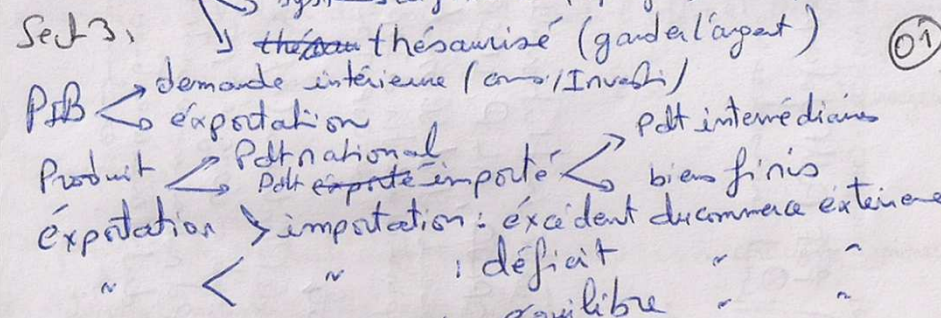 Sect 3, ↳ thésaurisé (garder l'argent) 01
PIB < demande intérieure (cons/Investi)
exportation
Produit < Pdt national
Pdt importé < pdt intermédiaires
biens finis
éxportation > importation : éxcédent du commerce éxterieure
" < " : déficit " "
équilibre " "